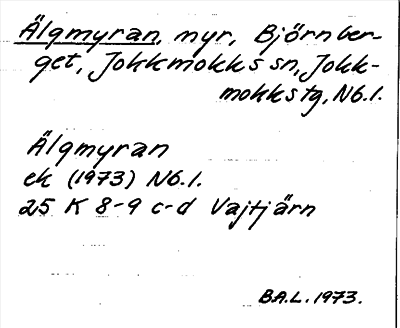 Älgmyran, myr, Björnber-
get, Jokkmokks sn, Jokk-
mokks tg, Nb.l.
Älgmyran
ek (1973) Nb.l.
25 K 8-9 c-d Vajtjärn
B.A.L. 1973.